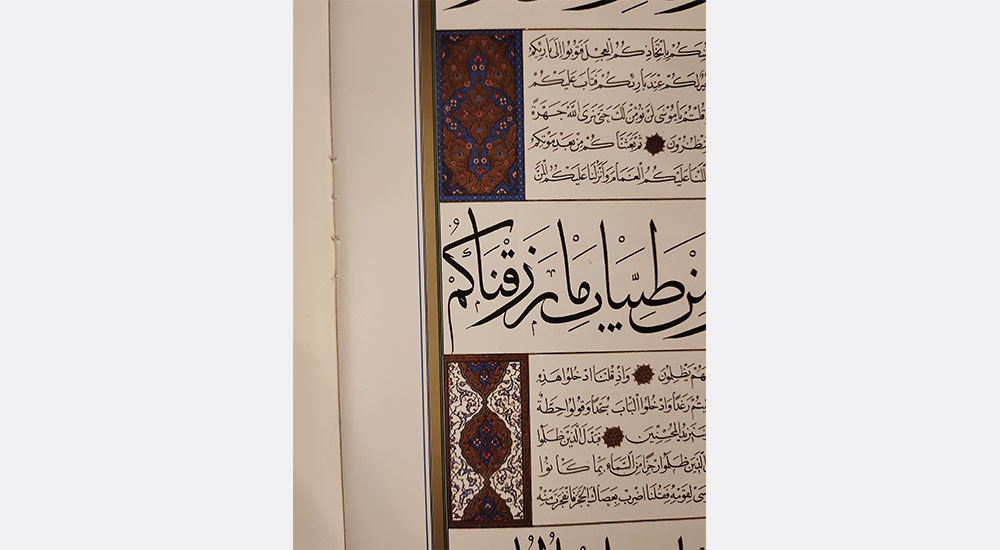 بِاتِّخَاذِكُمُ الْعِجْلَ فَتُوبُوا إِلَىٰ بَارِئِكُمْ
لَكُمْ عِنْدَ بَارِئِكُمْ فَتَابَ عَلَيْكُمْ
قُلْتُمْ يَا مُوسَىٰ لَنْ نُؤْمِنَ لَكَ حَتَّىٰ نَرَى اللّٰهَ جَهْرَةً
ثُمَّ بَعَثْنَاكُمْ مِنْ بَعْدِ مَوْتِكُمْ
عَلَيْكُمُ الْغَمَامَ وَأَنْزَلْنَا عَلَيْكُمُ الْمَنَّ
مِنْ طَيِّبَاتِ مَا رَزَقْنَاكُمْ
يَظْلِمُونَ وَإِذْ قُلْنَا ادْخُلُوا هٰذِهِ
رَغَدًا وَادْخُلُوا الْبَابَ سُجَّدًا وَقُولُوا حِطَّةٌ
الْمُحْسِنِينَ فَبَدَّلَ الَّذِينَ ظَلَمُوا
الَّذِينَ ظَلَمُوا رِجْزًا مِنَ السَّمَاءِ بِمَا كَانُوا
لِقَوْمِهِ فَقُلْنَا اضْرِبْ بِعَصَاكَ الْحَجَرَ فَانْفَجَرَتْ مِنْهُ